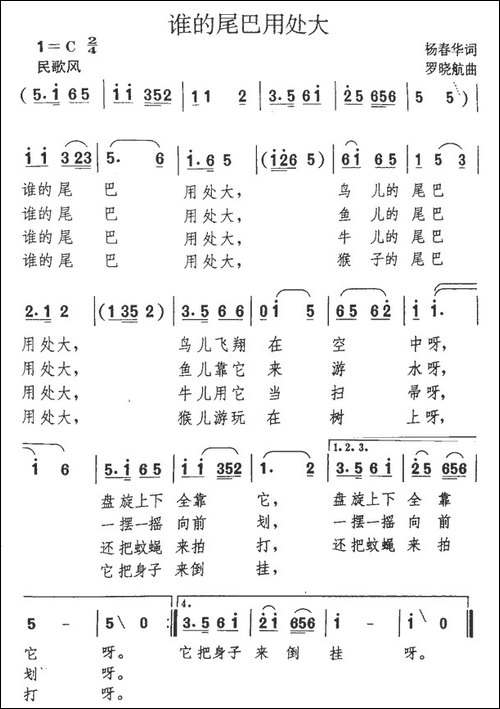 谁的尾巴用处大
1=C 2/4
杨春华词
民歌风
罗晓航曲
( 5.i 65 | ii 352 | 11 2 | 3.5 6i | 25 656 | 5 5 ) |
ii 323 | 5. 6 | i.6 5 | (i26 5) | 6i 6 5 | 15 3 |
谁的尾 巴 用处大, 鸟 儿的 尾巴
谁的尾 巴 用处大, 鱼 儿的 尾巴
谁的尾 巴 用处大, 牛 儿的 尾巴
谁的尾 巴 用处大, 猴 子的 尾巴
2.1 2 | (135 2) | 3.5 6 6 | 0i 5 | 65 62 | i i. |
用处大, 鸟儿飞翔 在 空 中呀,
用处大, 鱼儿靠它 来 游 水呀,
用处大, 牛儿用它 当 扫 帚呀,
用处大, 猴儿游玩 在 树 上呀,
i 6 | 5.i 65 | ii 352 | 1. 2 | 1.2.3. 3.5 6i | 25 656 |
盘旋上下 全靠 它, 盘旋上下 全靠
一摆一摇 向前 划, 一摆一摇 向前
还把蚊蝇 来拍 打, 还把蚊蝇 来拍
它把身子 来倒 挂,
5 - | 5\ 0 :| 4. 3.5 6i | 2i 656 | i - | i\ 0 ||
它 呀。 它把身子 来 倒 挂 呀。
划 呀。
打 呀。